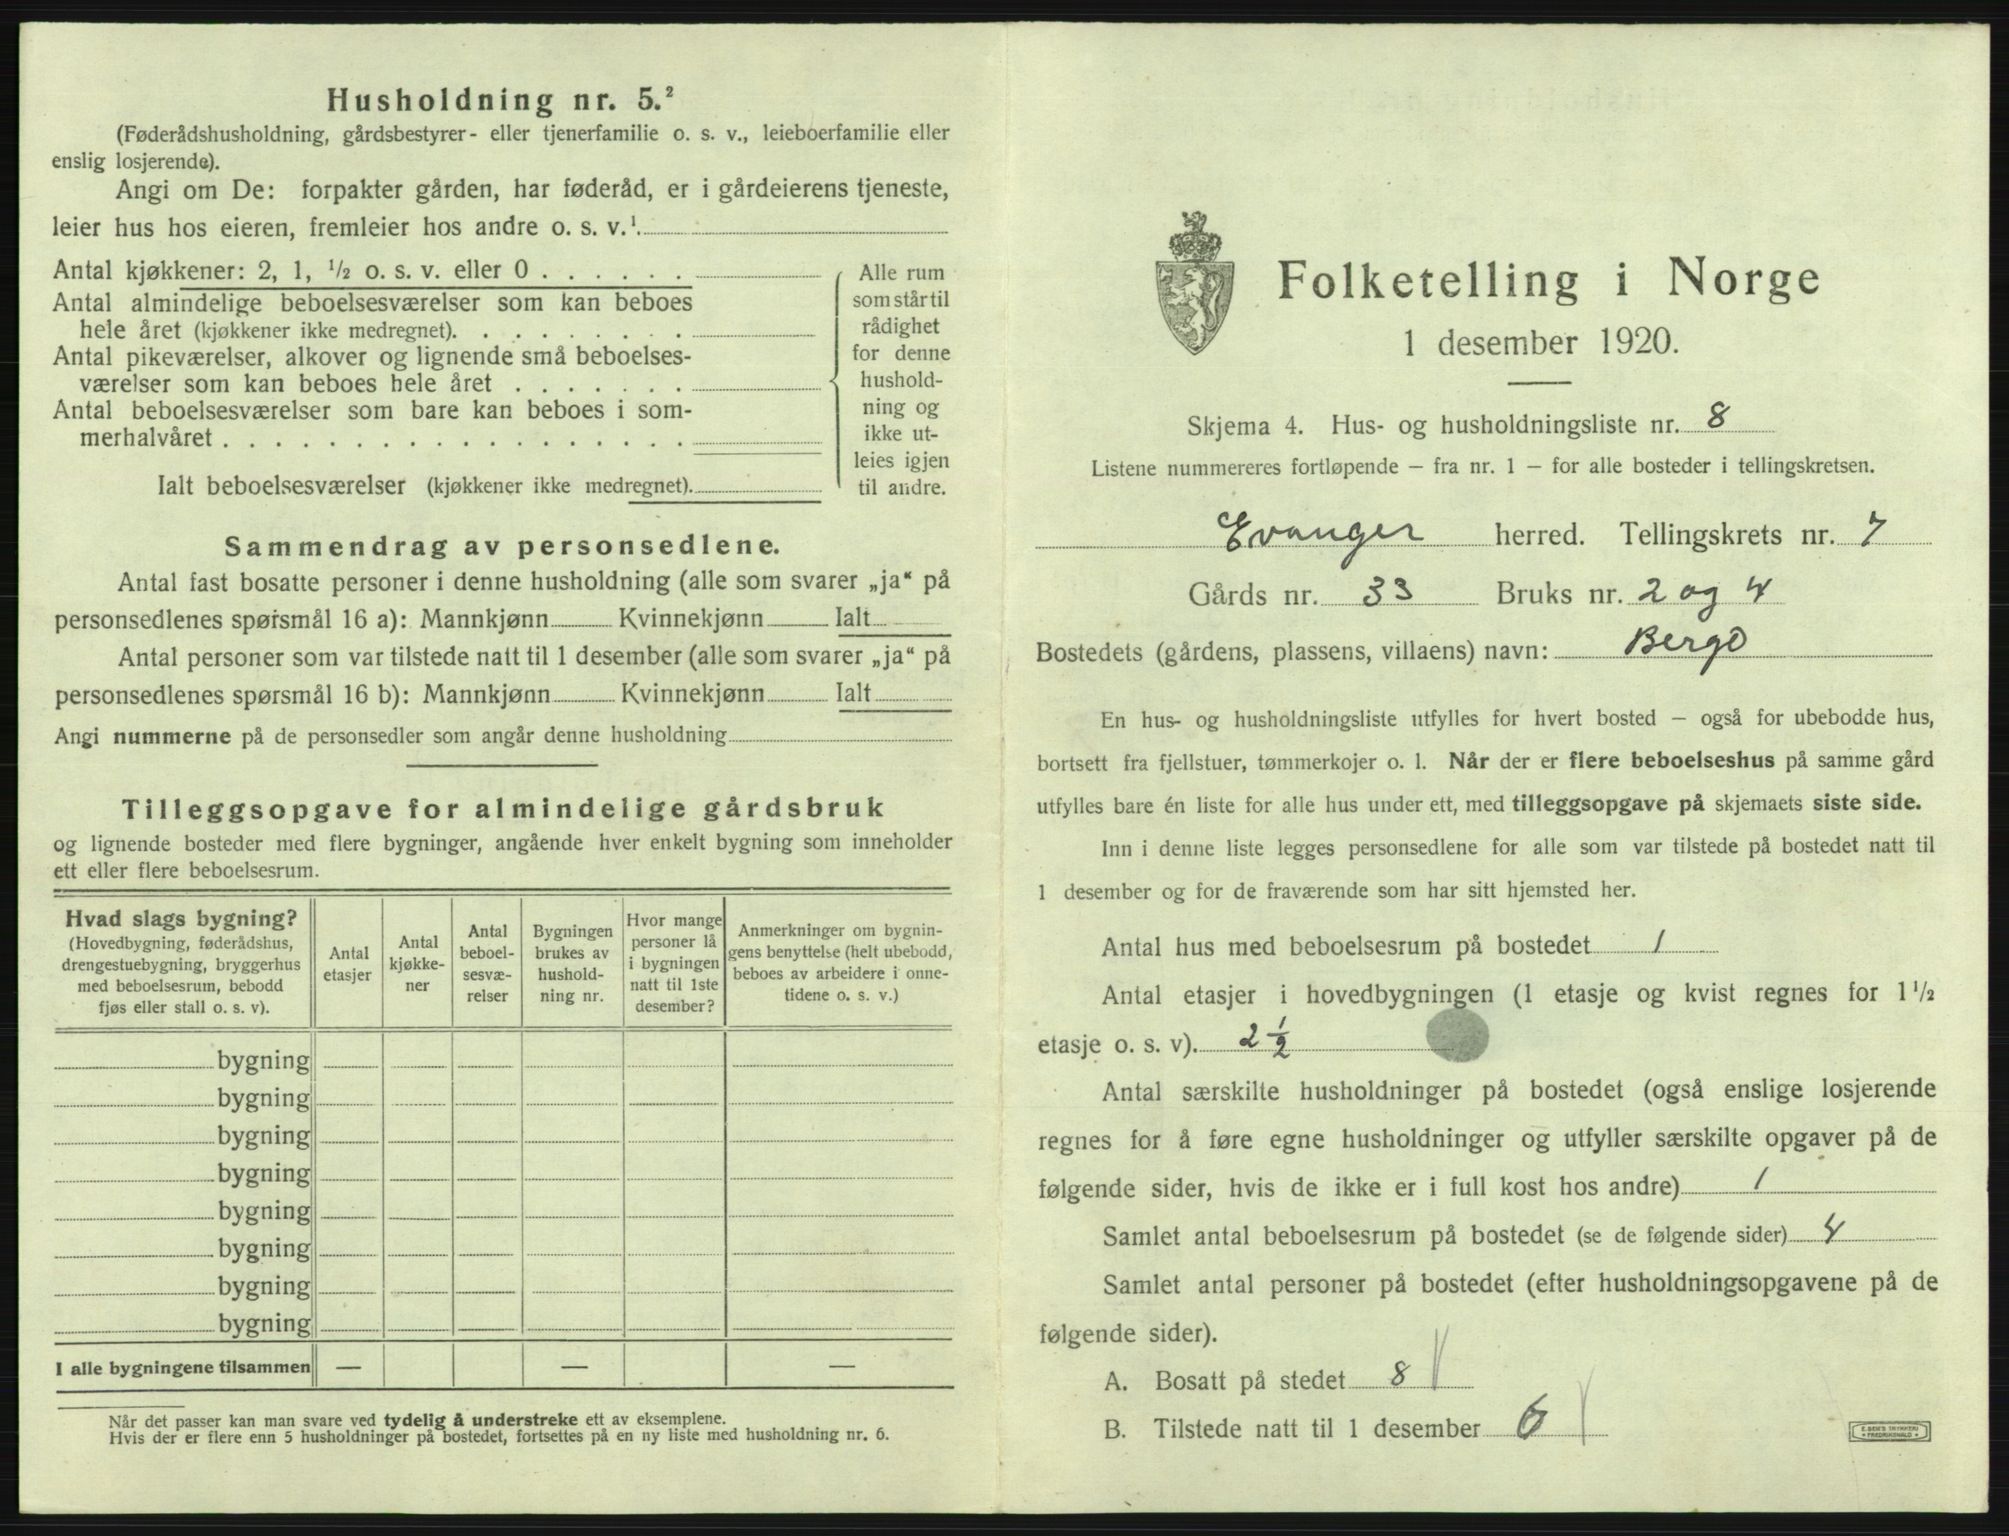 Husholdning nr. 5.²
(Føderådshusholdning, gårdsbestyrer- eller tjenerfamilie o. s. v., leieboerfamilie eller
enslig losjerende).
Angi om De: forpakter gården, har føderåd, er i gårdeierens tjeneste,
leier hus hos eieren, fremleier hos andre o. s. v.¹.
Antal kjøkkener: 2, 1, ½ o. s. v. eller 0 . . . . . .
Antal almindelige beboelsesværelser som kan beboes
hele året (kjøkkener ikke medregnet). . . . . . . . .
Antal pikeværelser, alkover og lignende små beboelses-
værelser som kan beboes hele året . . . . . . .
Antal beboelsesværelser som bare kan beboes i som-
merhalvåret . . . . . . . . . . . . . . . . . .
Ialt beboelsesværelser (kjøkkener ikke medregnet).
Alle rum
som står til
rådighet
for denne
hushold-
ning og
ikke ut-
leies igjen
til andre.
Sammendrag av personsedlene.
Antal fast bosatte personer i denne husholdning (alle som svarer „ja“ på
personsedlenes spørsmål 16 a): Mannkjønn Kvinnekjønn Ialt
Antal personer som var tilstede natt til 1 desember (alle som svarer „ja“ på
personsedlenes spørsmål 16 b): Mannkjønn Kvinnekjønn Ialt
Angi nummerne på de personsedler som angår denne husholdning
Tilleggsopgave for almindelige gårdsbruk
og lignende bosteder med flere bygninger, angående hver enkelt bygning som inneholder
ett eller flere beboelsesrum.
Hvad slags bygning?
(Hovedbygning, føderådshus,
drengestuebygning, bryggerhus
med beboelsesrum, bebodd
fjøs eller stall o. s. v).
Antal
etasjer
Antal
kjøkke-
ner
Antal
beboel-
sesvæ-
relser
Bygningen
brukes av
hushold-
ning nr.
Hvor mange
personer lå
i bygningen
natt til 1ste
desember?
Anmerkninger om bygnin-
gens benyttelse (helt ubebodd,
beboes av arbeidere i onne-
tidene o. s. v.)
bygning
bygning
bygning
bygning
bygning
bygning
bygning
bygning
I alle bygningene tilsammen — — —
Når det passer kan man svare ved tydelig å understreke ett av eksemplene.
Hvis der er flere enn 5 husholdninger på bostedet, fortsettes på en ny liste med husholdning nr. 6.
Folketelling i Norge
1 desember 1920.
Skjema 4. Hus- og husholdningsliste nr. 8
Listene nummereres fortløpende – fra nr. 1 – for alle bosteder i tellingskretsen.
Evanger herred. Tellingskrets nr. 7
Gårds nr. 33 Bruks nr. 2 og 4
Bostedets (gårdens, plassens, villaens) navn: Bergo
En hus- og husholdningsliste utfylles for hvert bosted – også for ubebodde hus,
bortsett fra fjellstuer, tømmerkojer o. l. Når der er flere beboelseshus på samme gård
utfylles bare én liste for alle hus under ett, med tilleggsopgave på skjemaets siste side.
Inn i denne liste legges personsedlene for alle som var tilstede på bostedet natt til
1 desember og for de fraværende som har sitt hjemsted her.
Antal hus med beboelsesrum på bostedet 1
Antal etasjer i hovedbygningen (1 etasje og kvist regnes for 1½
etasje o. s. v). 2½
Antal særskilte husholdninger på bostedet (også enslige losjerende
regnes for å føre egne husholdninger og utfyller særskilte opgaver på de
følgende sider, hvis de ikke er i full kost hos andre) 1
Samlet antal beboelsesrum på bostedet (se de følgende sider) 4
Samlet antal personer på bostedet (efter husholdningsopgavene på de
følgende sider).
A. Bosatt på stedet 8
B. Tilstede natt til 1 desember 6
E. SEM'S TRYKKERI
FREDRIKSHALD